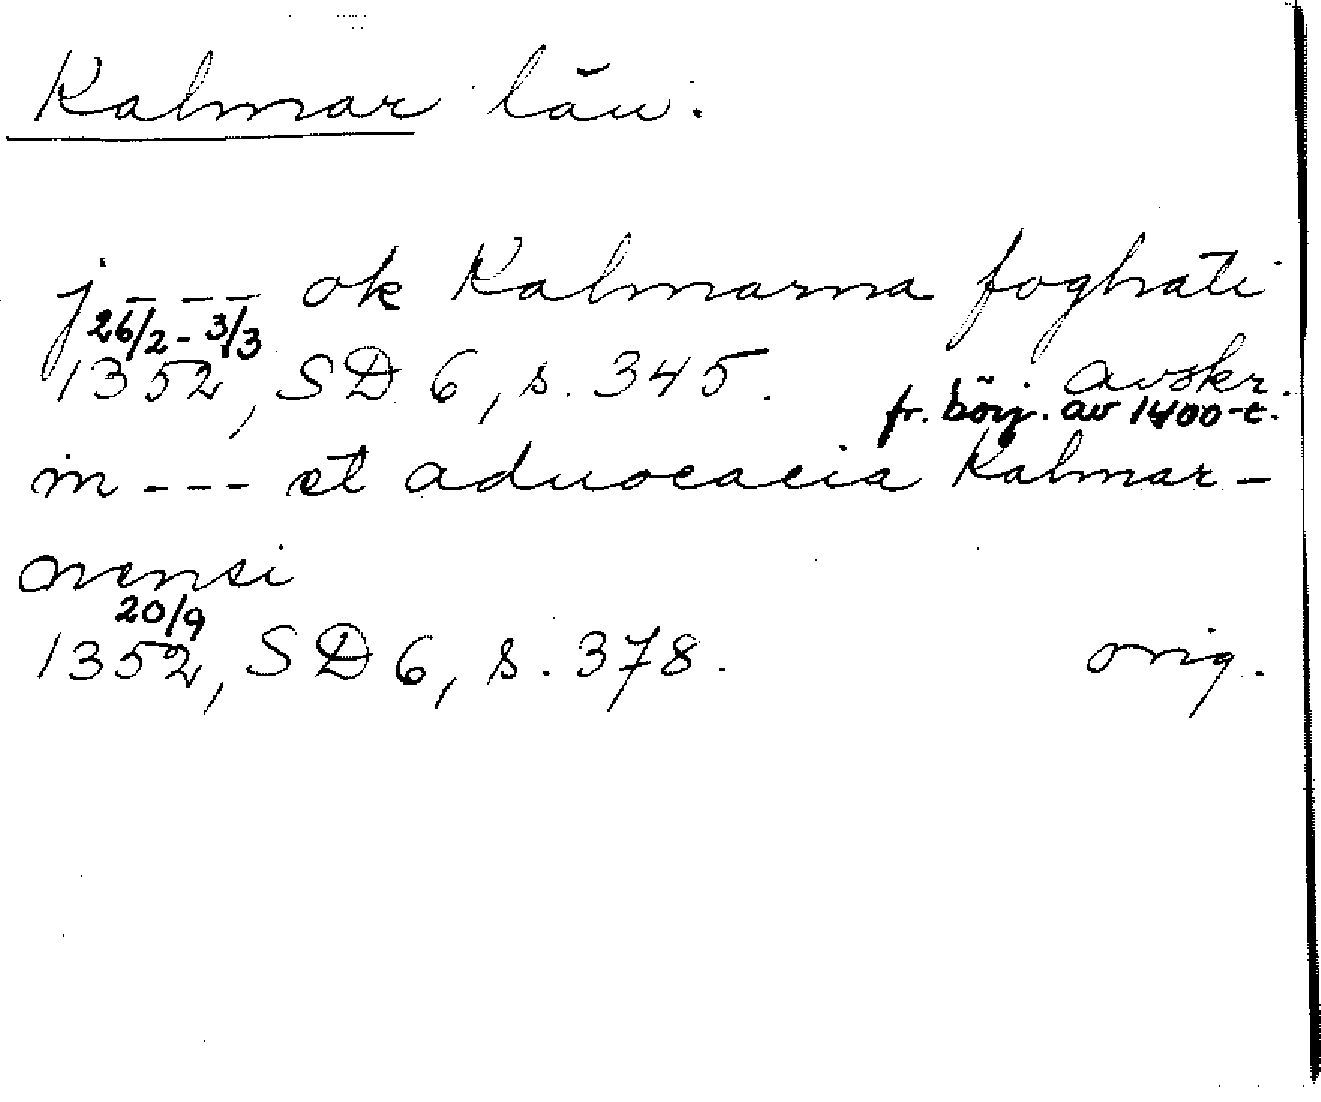 Kalmar län.
j - - - ok Kalmarna foghati
26/2 - 3/3
1352, SD 6, s. 345. avskr.
fr. börj. av 1400-t.
in - - - et aduocacia Kalmar-
nensi
20/9
1352, SD 6, s. 378. orig.